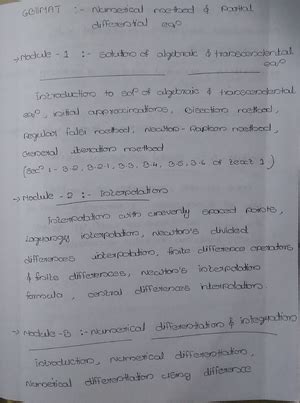 :- Numerical method & Partial
differential eqⁿ
→ Module - 1 :- solution of algebraic & transcendental
eqⁿ
Introduction to solⁿ of algebraic & transcendental
eqⁿ, initial approximations, Bisection method,
regular falsi method, Newton-Raphson method,
General iteration method
3.3, 3.4, 3.5, 3.6 of text 1)
→ Module - 2 :- Interpolation
Interpolation with unevenly spaced points,
lagrange interpolation, newton's divided
differences interpolation, finite difference operators
& finite differences, Newton's interpolation
formula, central differences interpolation.
→ Module - 3 :- Numerical differentiation & integration
introduction, numerical differentiation,
Numerical differentiation using difference